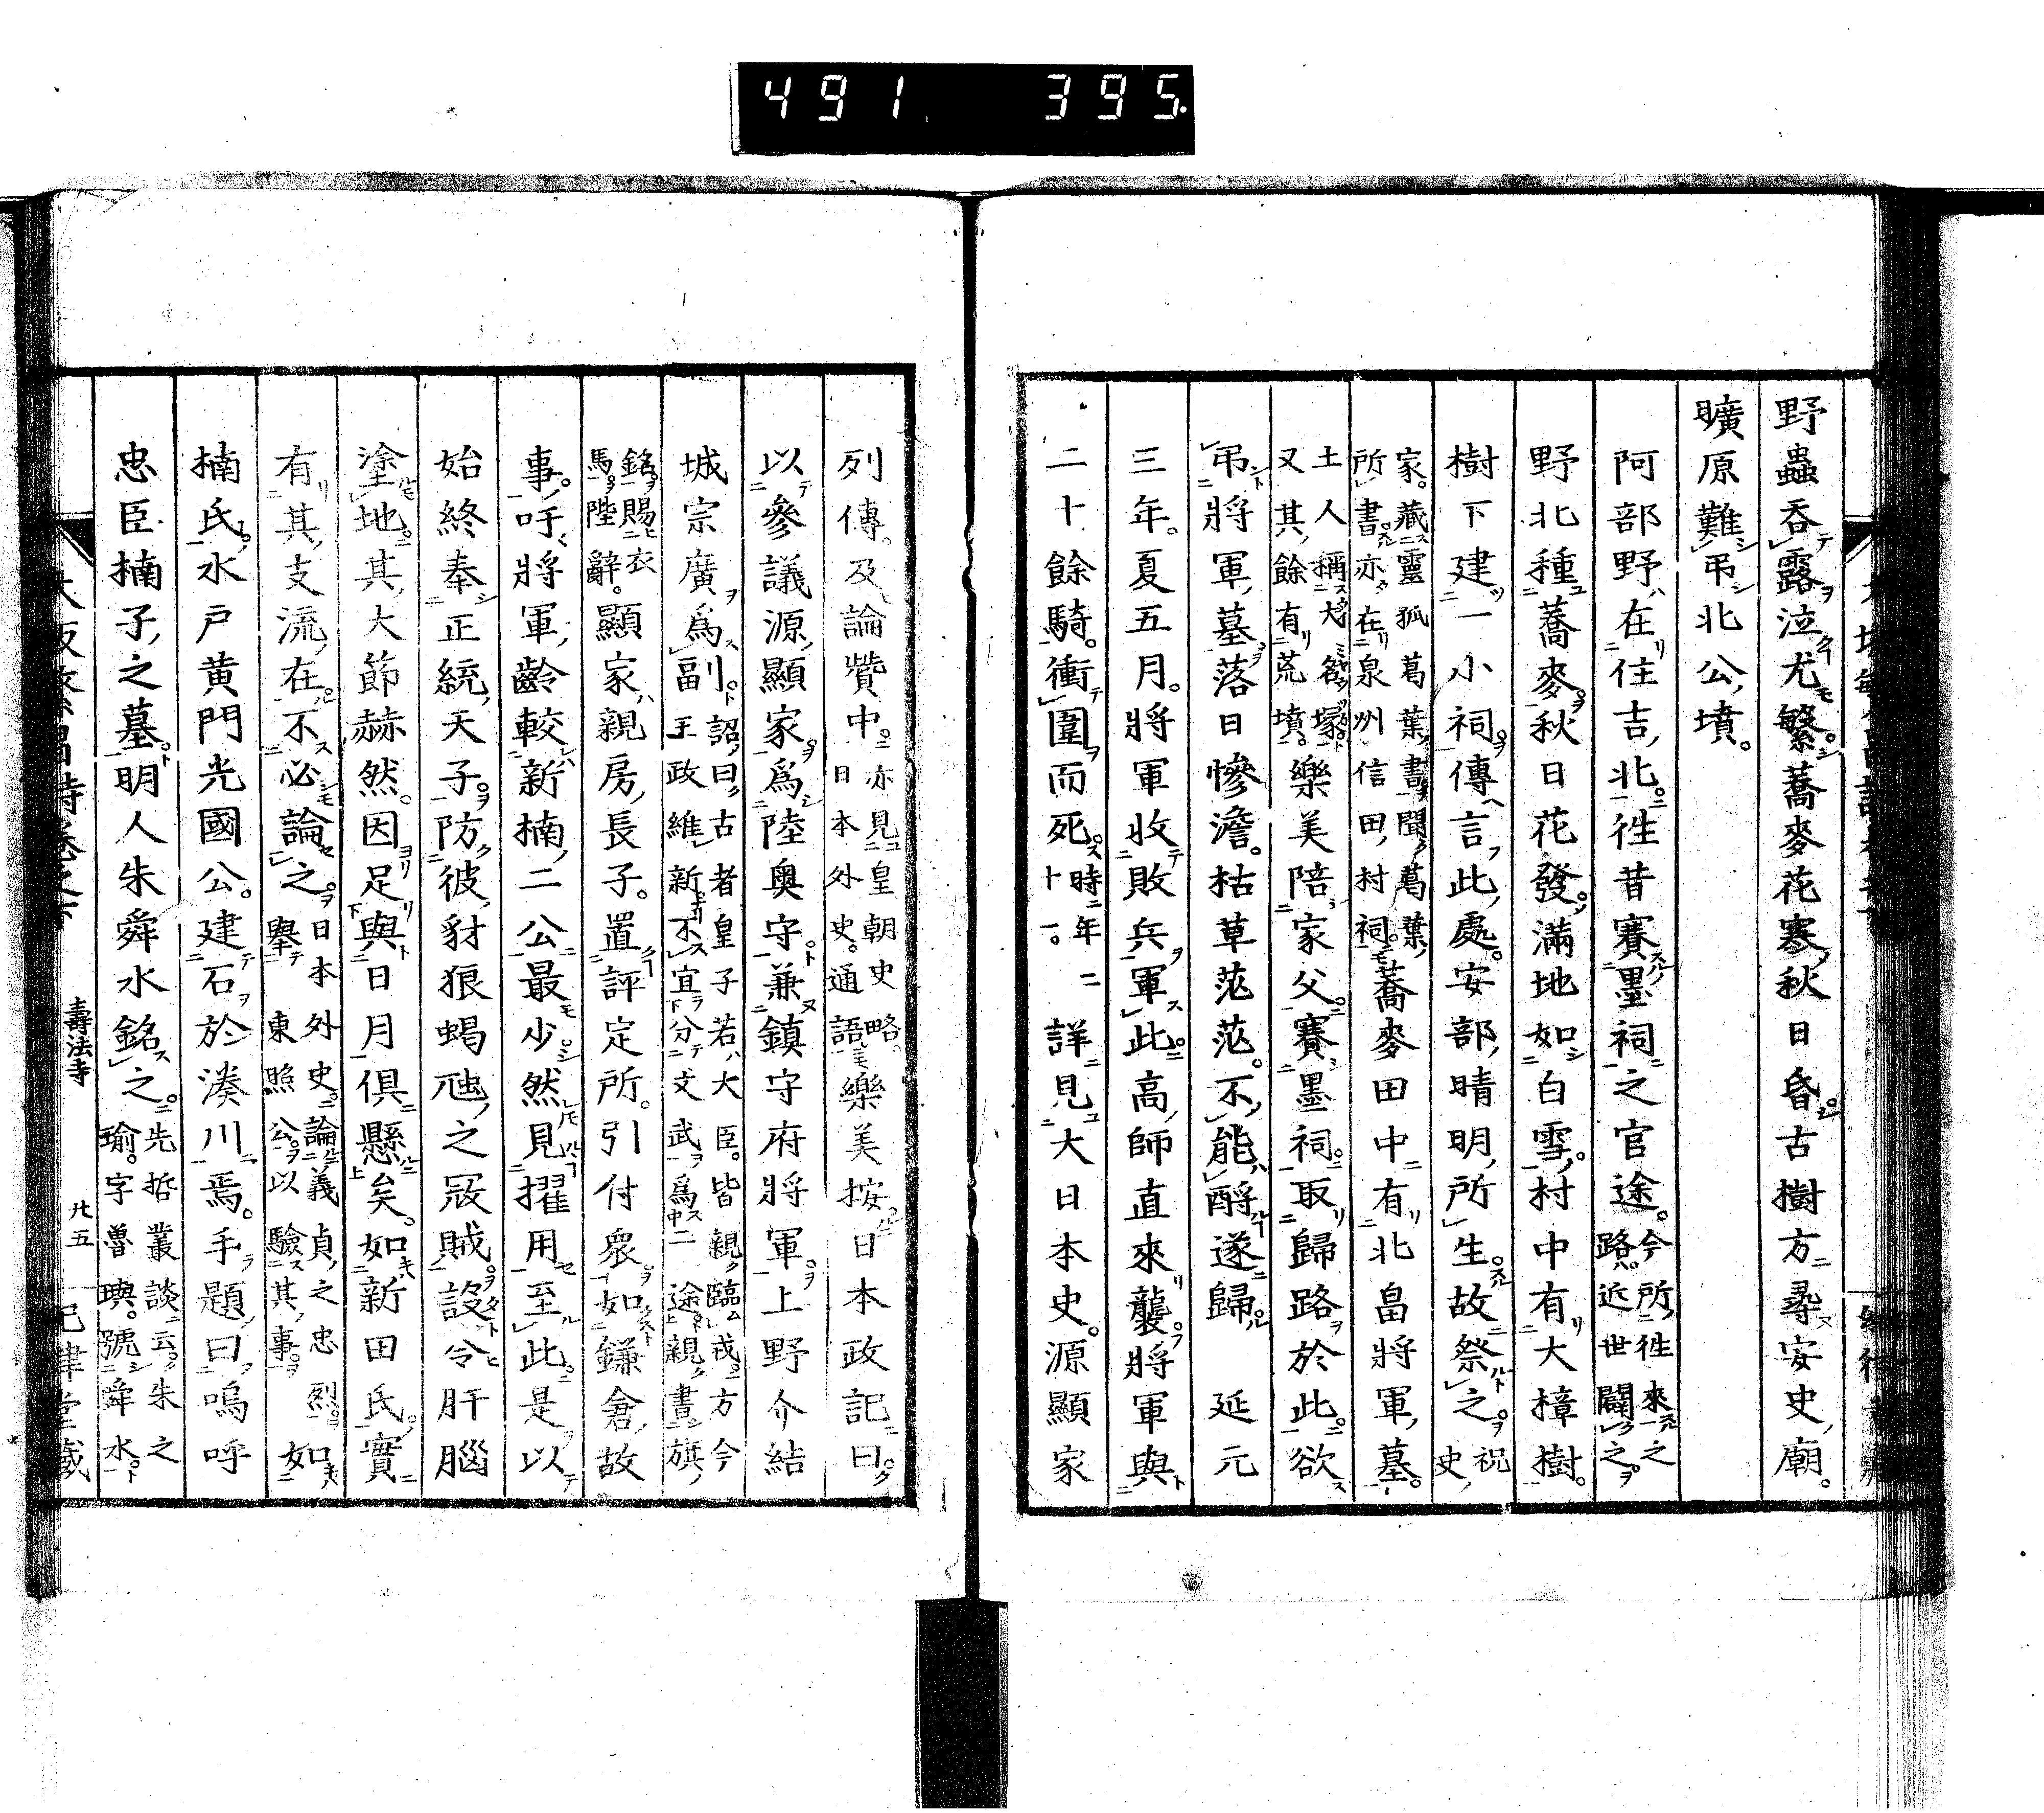 491 395
野蟲吞露泣尤繁蕎麥花寒秋日昏古樹方尋安史廟
曠原難弔北公墳
阿部野在住吉北徃昔賽墨祠之官途今所徃來之路近世闢之
野北種蕎麥秋日花發滿地如白雪村中有大樟樹
樹下建一小祠傳言此處安部晴明所生故祭之祝史
家藏靈狐葛葉畫聞葛葉所書亦在泉州信田村祠蕎麥田中有北畠將軍墓
土人稱塚又其餘有荒墳樂美陪家父賽墨祠取歸路於此欲
弔將軍墓落日慘澹枯草茫茫不能酹遂歸 延元
三年夏五月將軍收敗兵軍此高師直來襲將軍與
二十餘騎衝圍而死時年二十一詳見大日本史源顯家
列傳及論贊中亦見皇朝史略日本外史通語樂美按日本政記曰
以參議源顯家爲陸奧守兼鎮守府將軍上野介結
城宗廣爲副詔曰古者皇子若大臣皆親臨戎方今王政維新不宜分文武爲二途親書旗
銘賜衣馬陛辭顯家親房長子置評定所引付衆如鎌倉故
事吁將軍齡較新楠二公最少然見擢用至此是以
始終奉正統天子防彼豺狼蝎虺之冦賊設令肝腦
塗地其大節赫然因足與日月俱懸矣如新田氏實
有其支流在不必論之日本外史論義貞之忠烈舉東照公以驗其事如
楠氏水戸黄門光國公建石於湊川焉手題曰嗚呼
忠臣楠子之墓明人朱舜水銘之先哲叢談云朱之瑜字魯璵號舜水
壽法寺 廿五